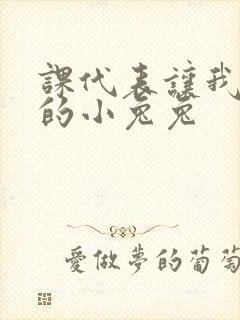 課代表讓我
的小兔兔
愛做夢的葡萄